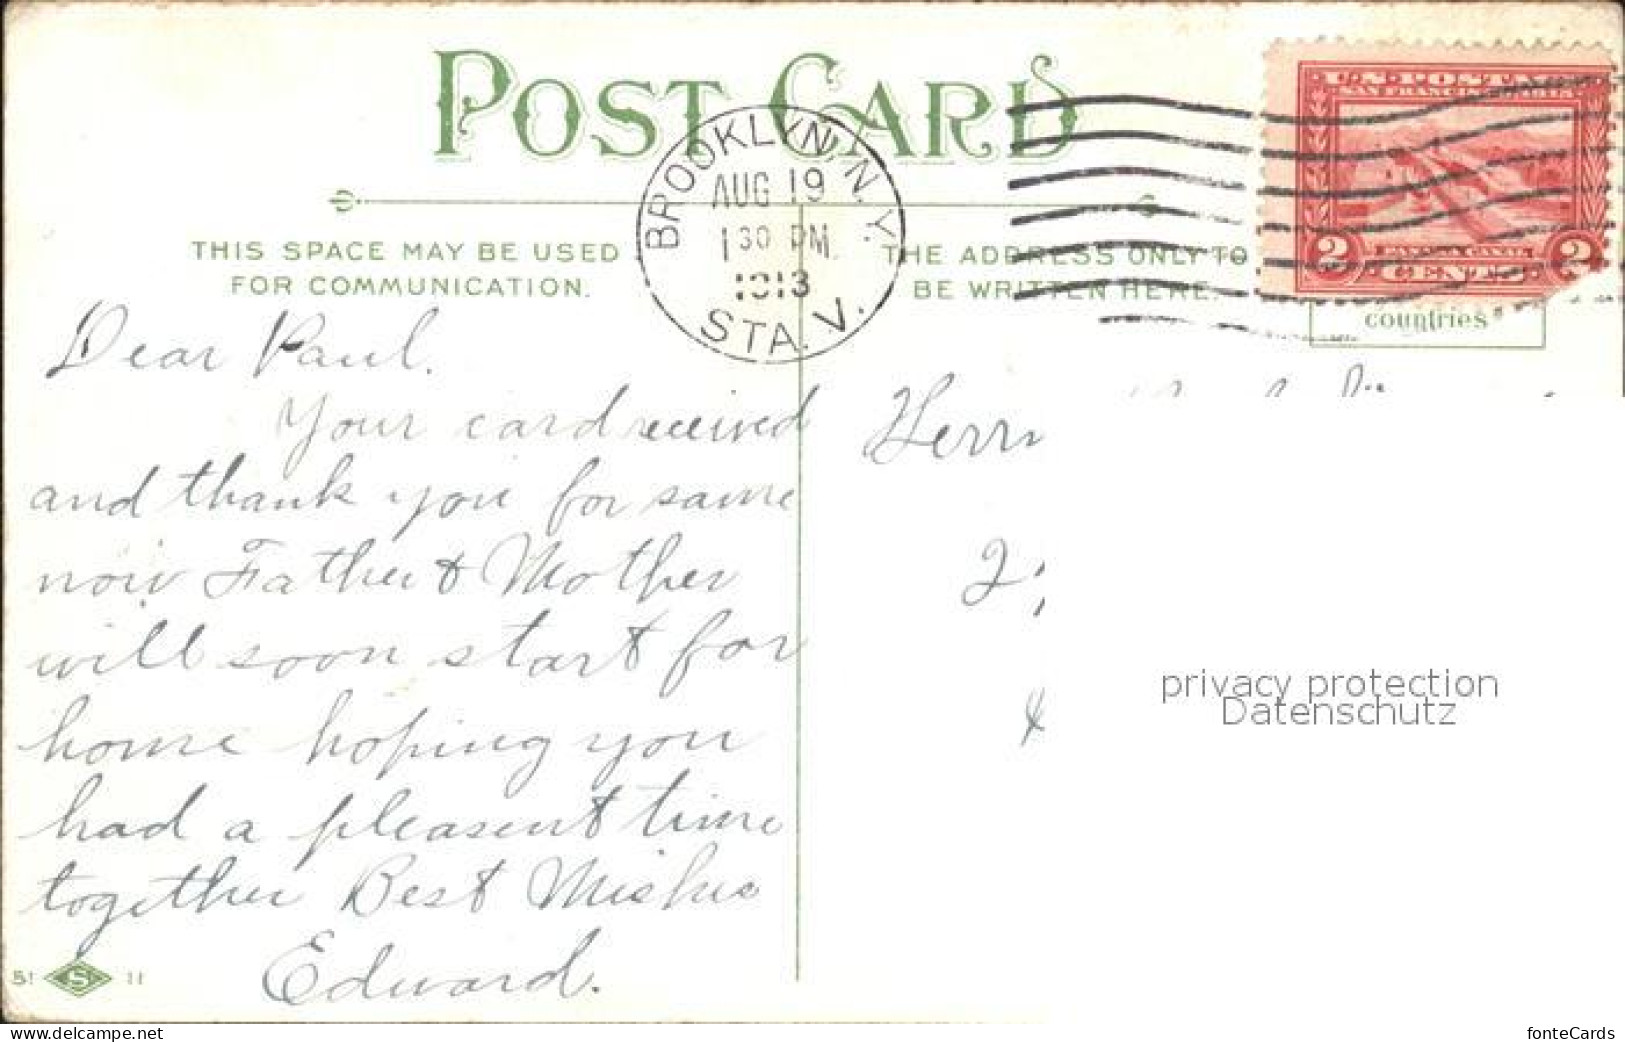 POST CARD
BROOKLYN, N.Y.
AUG 19
1 30 PM
1913
STA. V.
U.S. POSTAGE
SAN FRANCISCO 1915
2 PANAMA CANAL 2
CENTS
THIS SPACE MAY BE USED
FOR COMMUNICATION.
THE ADDRESS ONLY TO
BE WRITTEN HERE.
countries
Dear Paul.
Your card received
and thank you for same
now Father & Mother
will soon start for
home hoping you
had a pleasent time
together Best Wishes
Edward.
Herrn
2
&
privacy protection
Datenschutz
51 S 11
www.delcampe.net
fonteCards